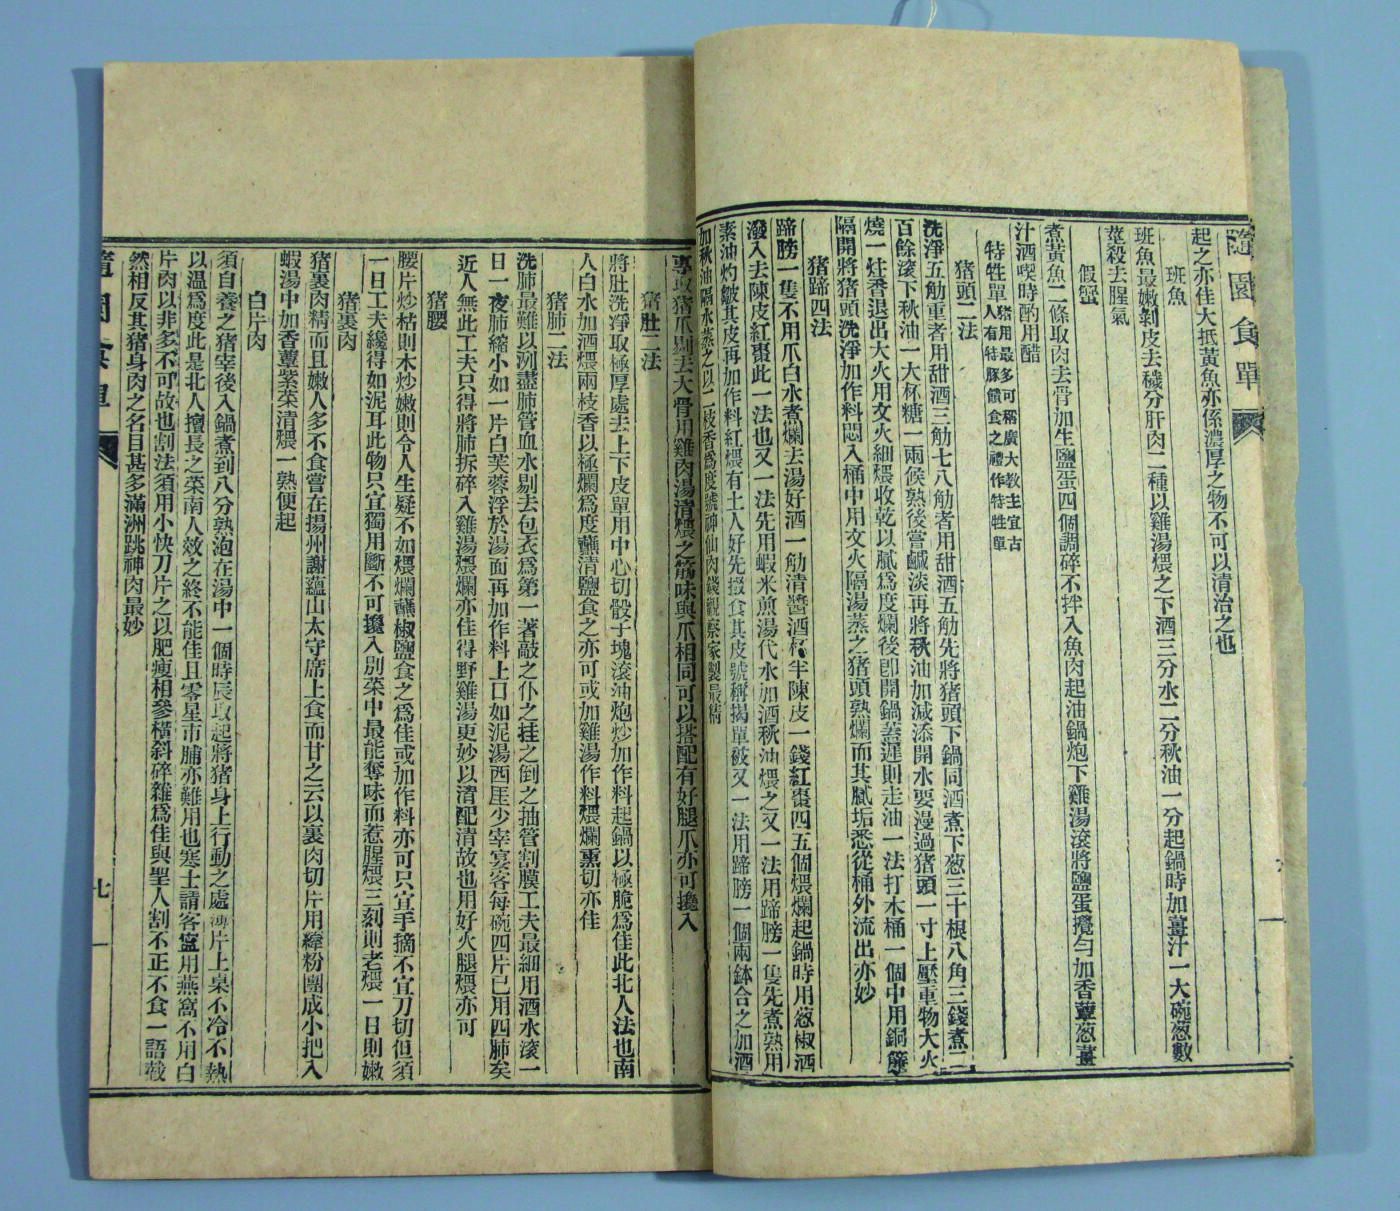 隨園食單
起之亦佳大抵黃魚亦係濃厚之物不可以清治之也
班魚
班魚最嫩剝皮去穢分肝肉二種以雞湯煨之下酒三分水二分秋油一分起鍋時加薑汁一大碗葱數
莖殺去腥氣
假蟹
煮黃魚二條取肉去骨加生鹽蛋四個調碎不拌入魚肉起油鍋炮下雞湯滾將鹽蛋攪勻加香蕈葱薑
汁酒喫時酌用醋
特牲單 猪用最多可稱廣大教主宜古人有特豚饋食之禮作特牲單
猪頭二法
洗淨五觔重者用甜酒三觔七八觔者用甜酒五觔先將猪頭下鍋同酒煮下葱三十根八角三錢煮二
百餘滾下秋油一大杯糖一兩候熟後嘗鹹淡再將秋油加減添開水要漫過猪頭一寸上壓重物大火
燒一炷香退出大火用文火細煨收乾以膩爲度爛後卽開鍋蓋遲則走油一法打木桶一個中用銅簾
隔開將猪頭洗淨加作料悶入桶中用文火隔湯蒸之猪頭熟爛而其膩垢悉從桶外流出亦妙
猪蹄四法
蹄膀一隻不用爪白水煮爛去湯好酒一觔清醬酒杯半陳皮一錢紅棗四五個煨爛起鍋時用葱椒酒
潑入去陳皮紅棗此一法也又一法先用蝦米煎湯代水加酒秋油煨之又一法用蹄膀一隻先煮熟用
素油灼皺其皮再加作料紅煨有土人好先掇食其皮號稱揭單被又一法用蹄膀一個兩鉢合之加酒
加秋油隔水蒸之以二枝香爲度號神仙肉錢觀察家製最精
專取猪爪剔去大骨用雞肉湯清煨之筋味與爪相同可以搭配有好腿爪亦可攙入
猪肚二法
將肚洗淨取極厚處去上下皮單用中心切骰子塊滾油炮炒加作料起鍋以極脆爲佳此北人法也南
人白水加酒煨兩枝香以極爛爲度蘸清鹽食之亦可或加雞湯作料煨爛熏切亦佳
猪肺二法
洗肺最難以洌盡肺管血水剔去包衣爲第一著敲之仆之挂之倒之抽管割膜工夫最細用酒水滾一
日一夜肺縮小如一片白芙蓉浮於湯面再加作料上口如泥湯西厓少宰宴客每碗四片已用四肺矣
近人無此工夫只得將肺拆碎入雞湯煨爛亦佳得野雞湯更妙以清配清故也用好火腿煨亦可
猪腰
腰片炒枯則木炒嫩則令人生疑不如煨爛蘸椒鹽食之爲佳或加作料亦可只宜手摘不宜刀切但須
一日工夫纔得如泥耳此物只宜獨用斷不可攙入別菜中最能奪味而惹腥煨三刻則老煨一日則嫩
猪裏肉
猪裏肉精而且嫩人多不食嘗在揚州謝蘊山太守席上食而甘之云以裏肉切片用縴粉團成小把入
蝦湯中加香蕈紫菜清煨一熟便起
白片肉
須自養之猪宰後入鍋煮到八分熟泡在湯中一個時辰取起將猪身上行動之處薄片上桌不冷不熱
以溫爲度此是北人擅長之菜南人效之終不能佳且零星市脯亦難用也寒士請客寧用燕窩不用白
片肉以非多不可故也割法須用小快刀片之以肥瘦相參橫斜碎雜爲佳與聖人割不正不食一語截
然相反其猪身肉之名目甚多滿洲跳神肉最妙
隨園食單
七